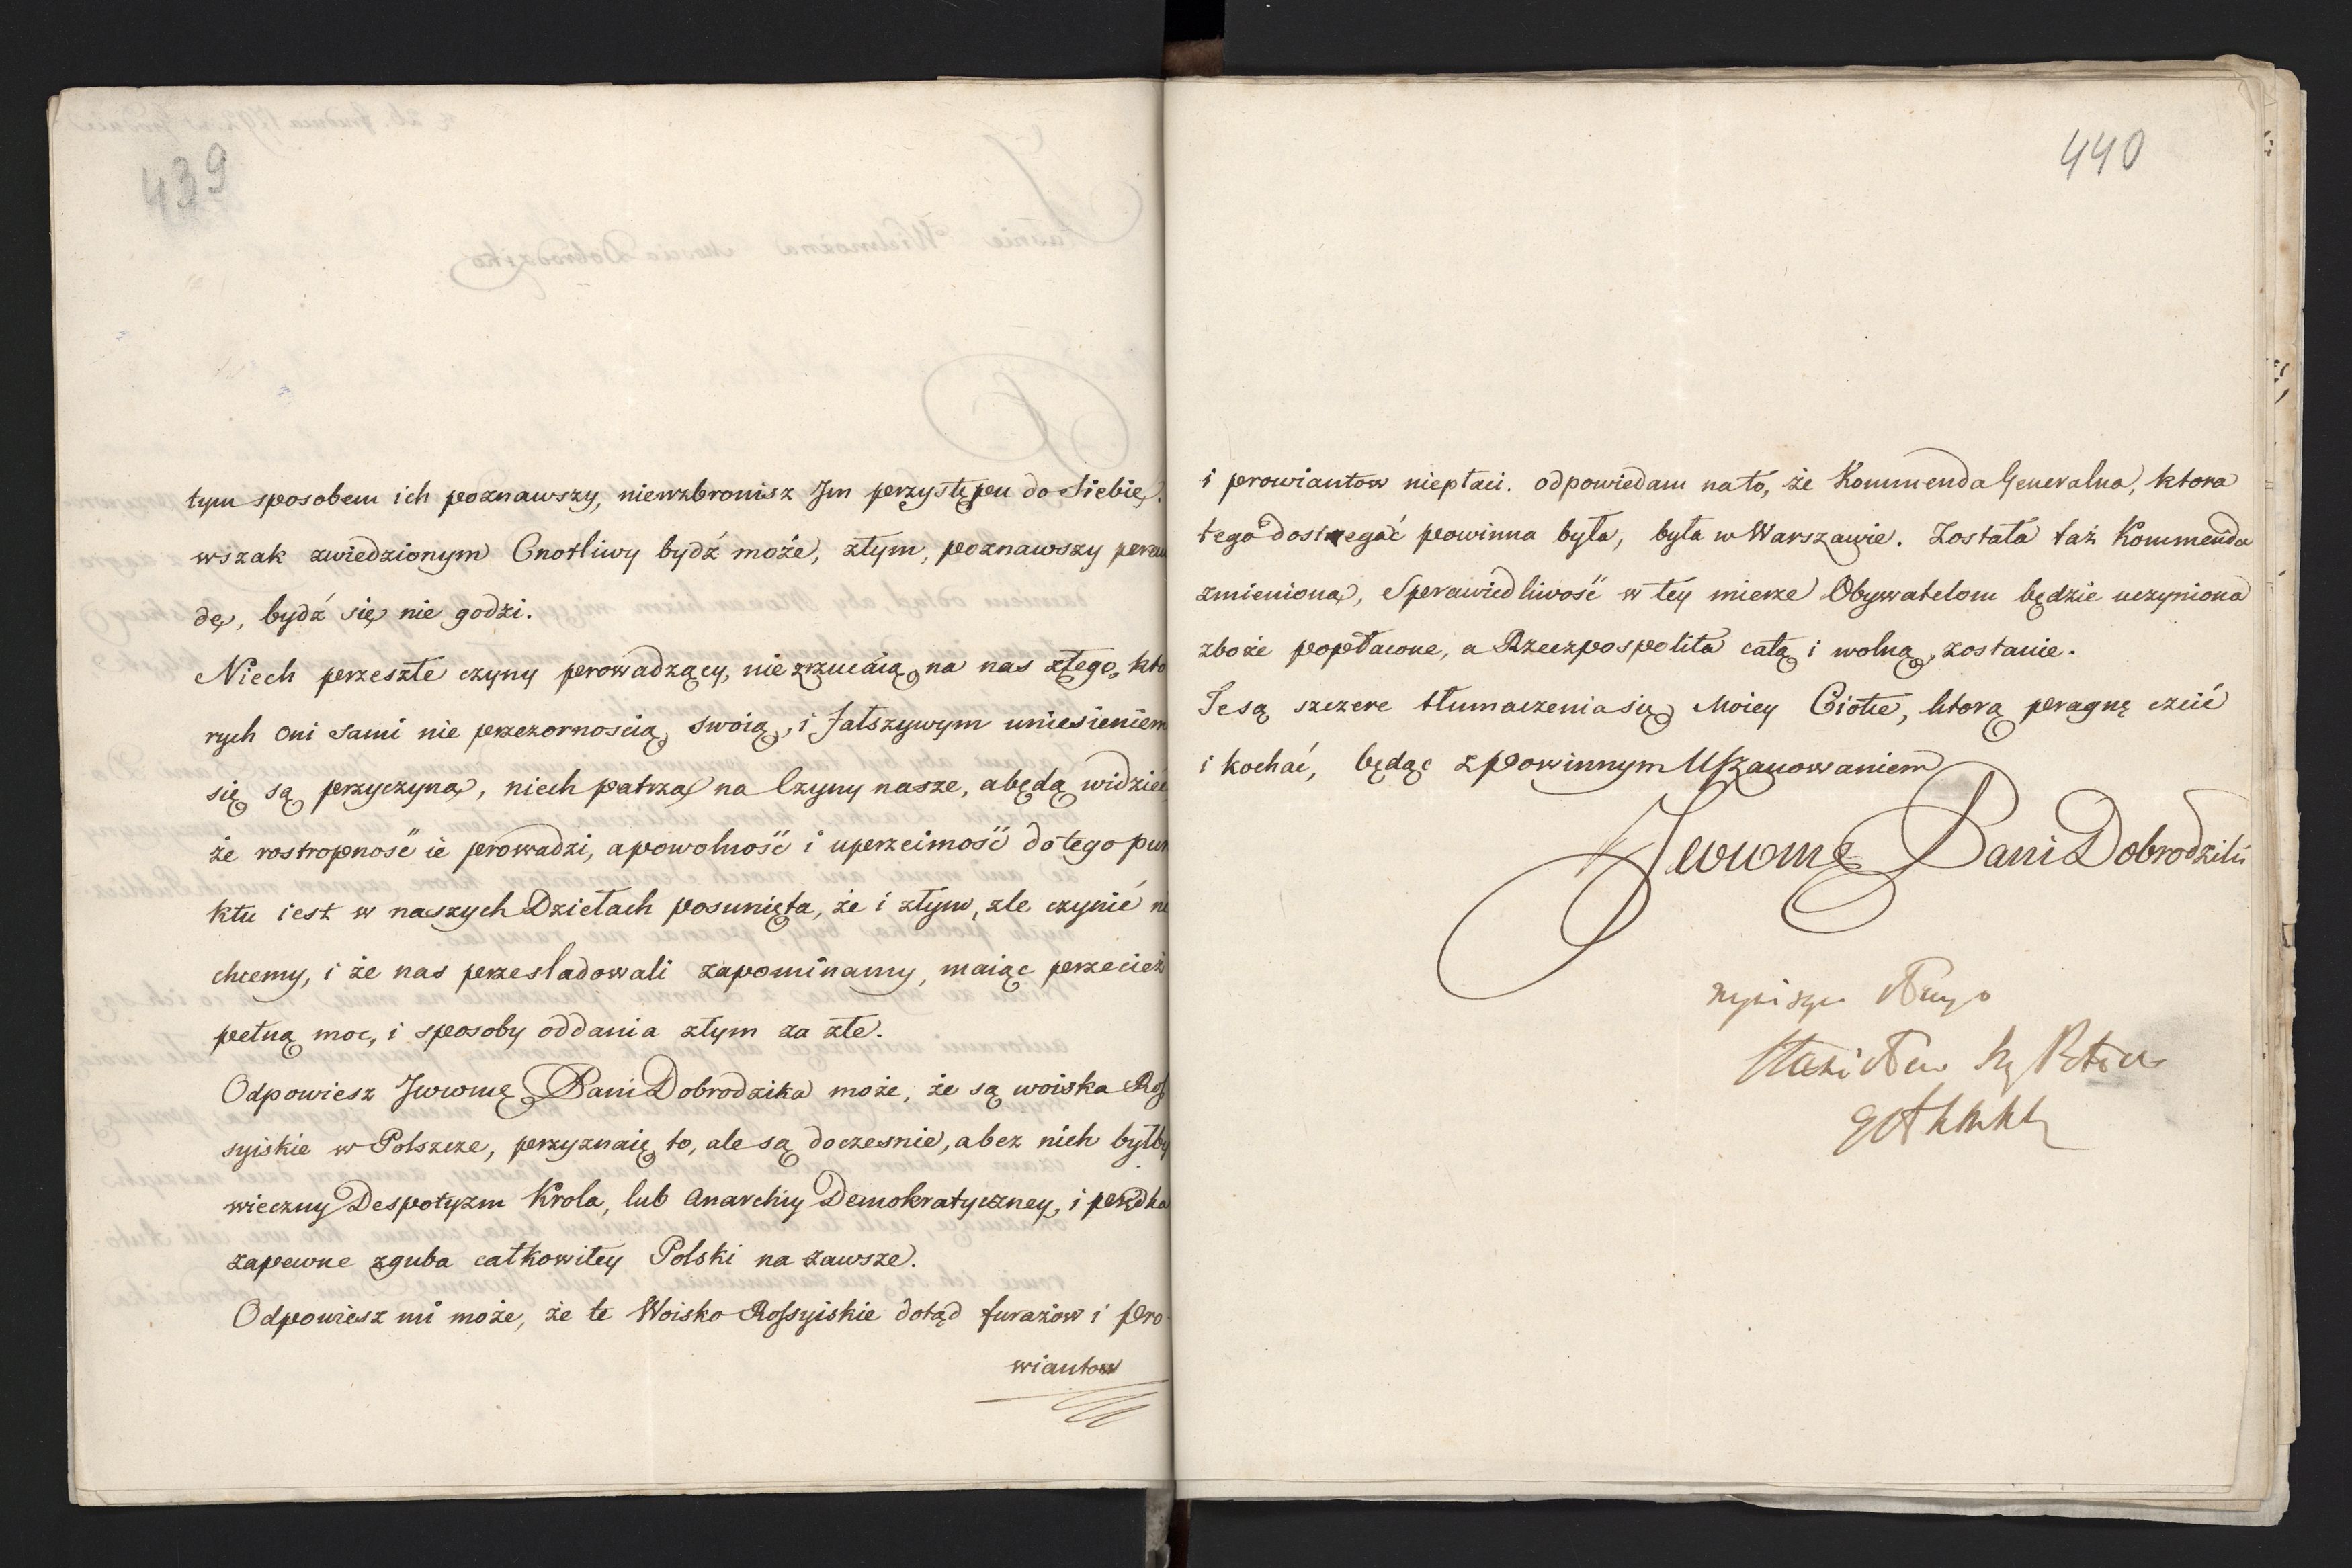 439
tym sposobem ich poznawszy, niewzbronisz Jm przystępu do Siebie,
wszak zwiedzionym Cnotliwy bydź może, złym, poznawszy praw
dę, bydź się nie godzi.
Niech przeszłe czyny prowadzący, nie zrzucaią na nas złego, kto
rych oni sami nie przezornoscią swoią, i fałszywym uniesieniem
się są przyczyną, niech patrzą na Czyny nasze, a będą widzieć,
że rostropność ie prowadzi, a powolność i uprzeimość do tego pun
ktu iest w naszych Dziełach posunięta, że i złym, zle czynić nie
chcemy, i że nas przesladowali zapominamy, maiąc przecież
pełną moc, i sposoby oddania złym za złe.
Odpowiesz Jwwmę Pani Dobrodzika może, że są woiska Ros
syiskie w Polszcze, przyznaię to, ale są doczesnie, a bez nich byłby
wieczny Despotyzm Krola, lub Anarchiy Demokratyczney, i prędka
zapewne zguba całkowitey Polski na zawsze.
Odpowiesz mi może, że te Woisko Rossyiskie dotąd furażow i pro-
wiantow
440
i prowiantow niepłaci. odpowiedam na to, że Kommenda Generalna, ktora
tego dostrzegać powinna była, była w Warszawie. Została taż Kommenda
zmieniona, Sprawiedliwość w tey mierze Obywatelom będzie uczyniona
zboże popłacone, a Rzeczpospolita całą i wolną, zostanie.
Te są szczere tłumaczenia się Moiey Ciotce, ktorą pragnę czcić
i kochać, będąc z powinnym Uszanowaniem
Jwwmę Pani Dobrodziki